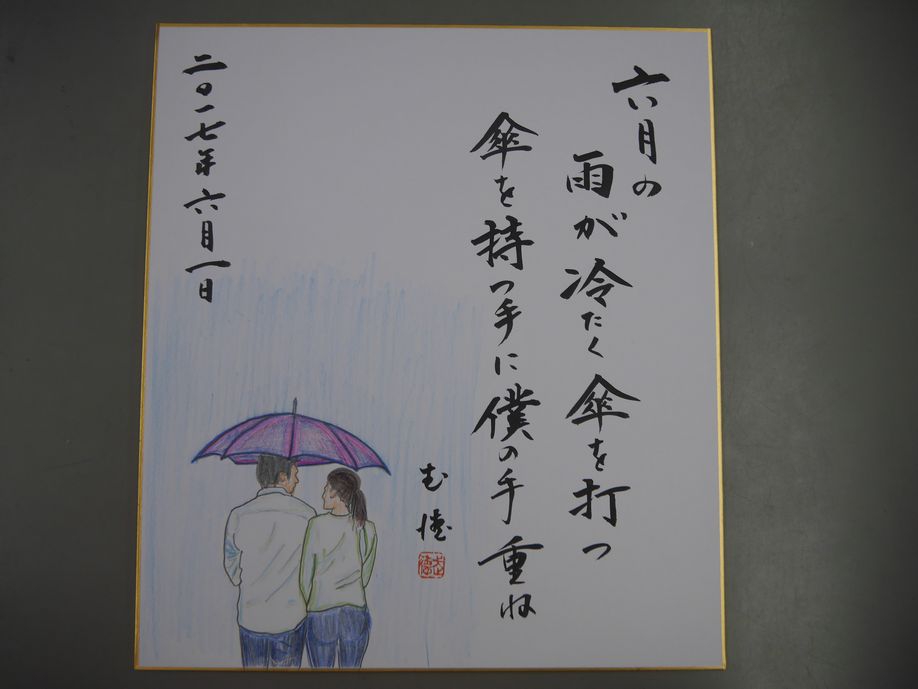 六月の
雨が冷たく傘を打つ
傘を持つ手に僕の手重ね
二〇一七年六月一日